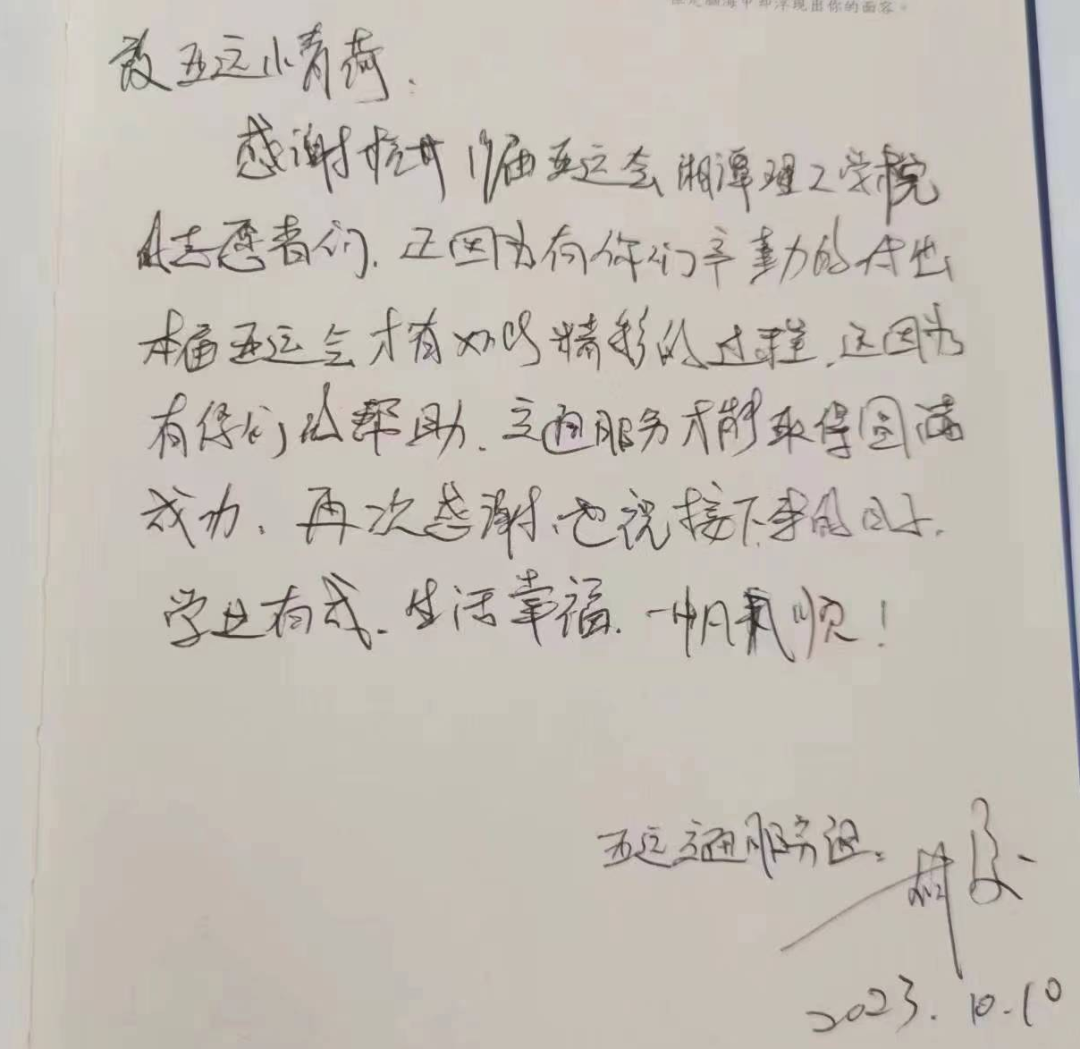 像是脑海中即浮现出你的面容。
致亚运小青荷:
感谢杭州19届亚运会湘潭理工学院
的志愿者们,正因为有你们辛勤的付出
本届亚运会才有如此精彩的过程,还因为
有你们的帮助,交通服务才能取得圆满
成功。再次感谢,也祝接下来的日子,
学业有成、生活幸福、一帆风顺!
亚运交通服务组:
2023.10.10